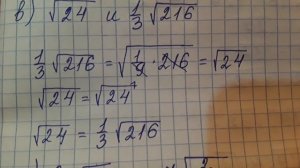 в) √24 и 1/3 √216
1/3 √216 = √(1/9 · 216) = √24
√24 = √24
√24 = 1/3 √216